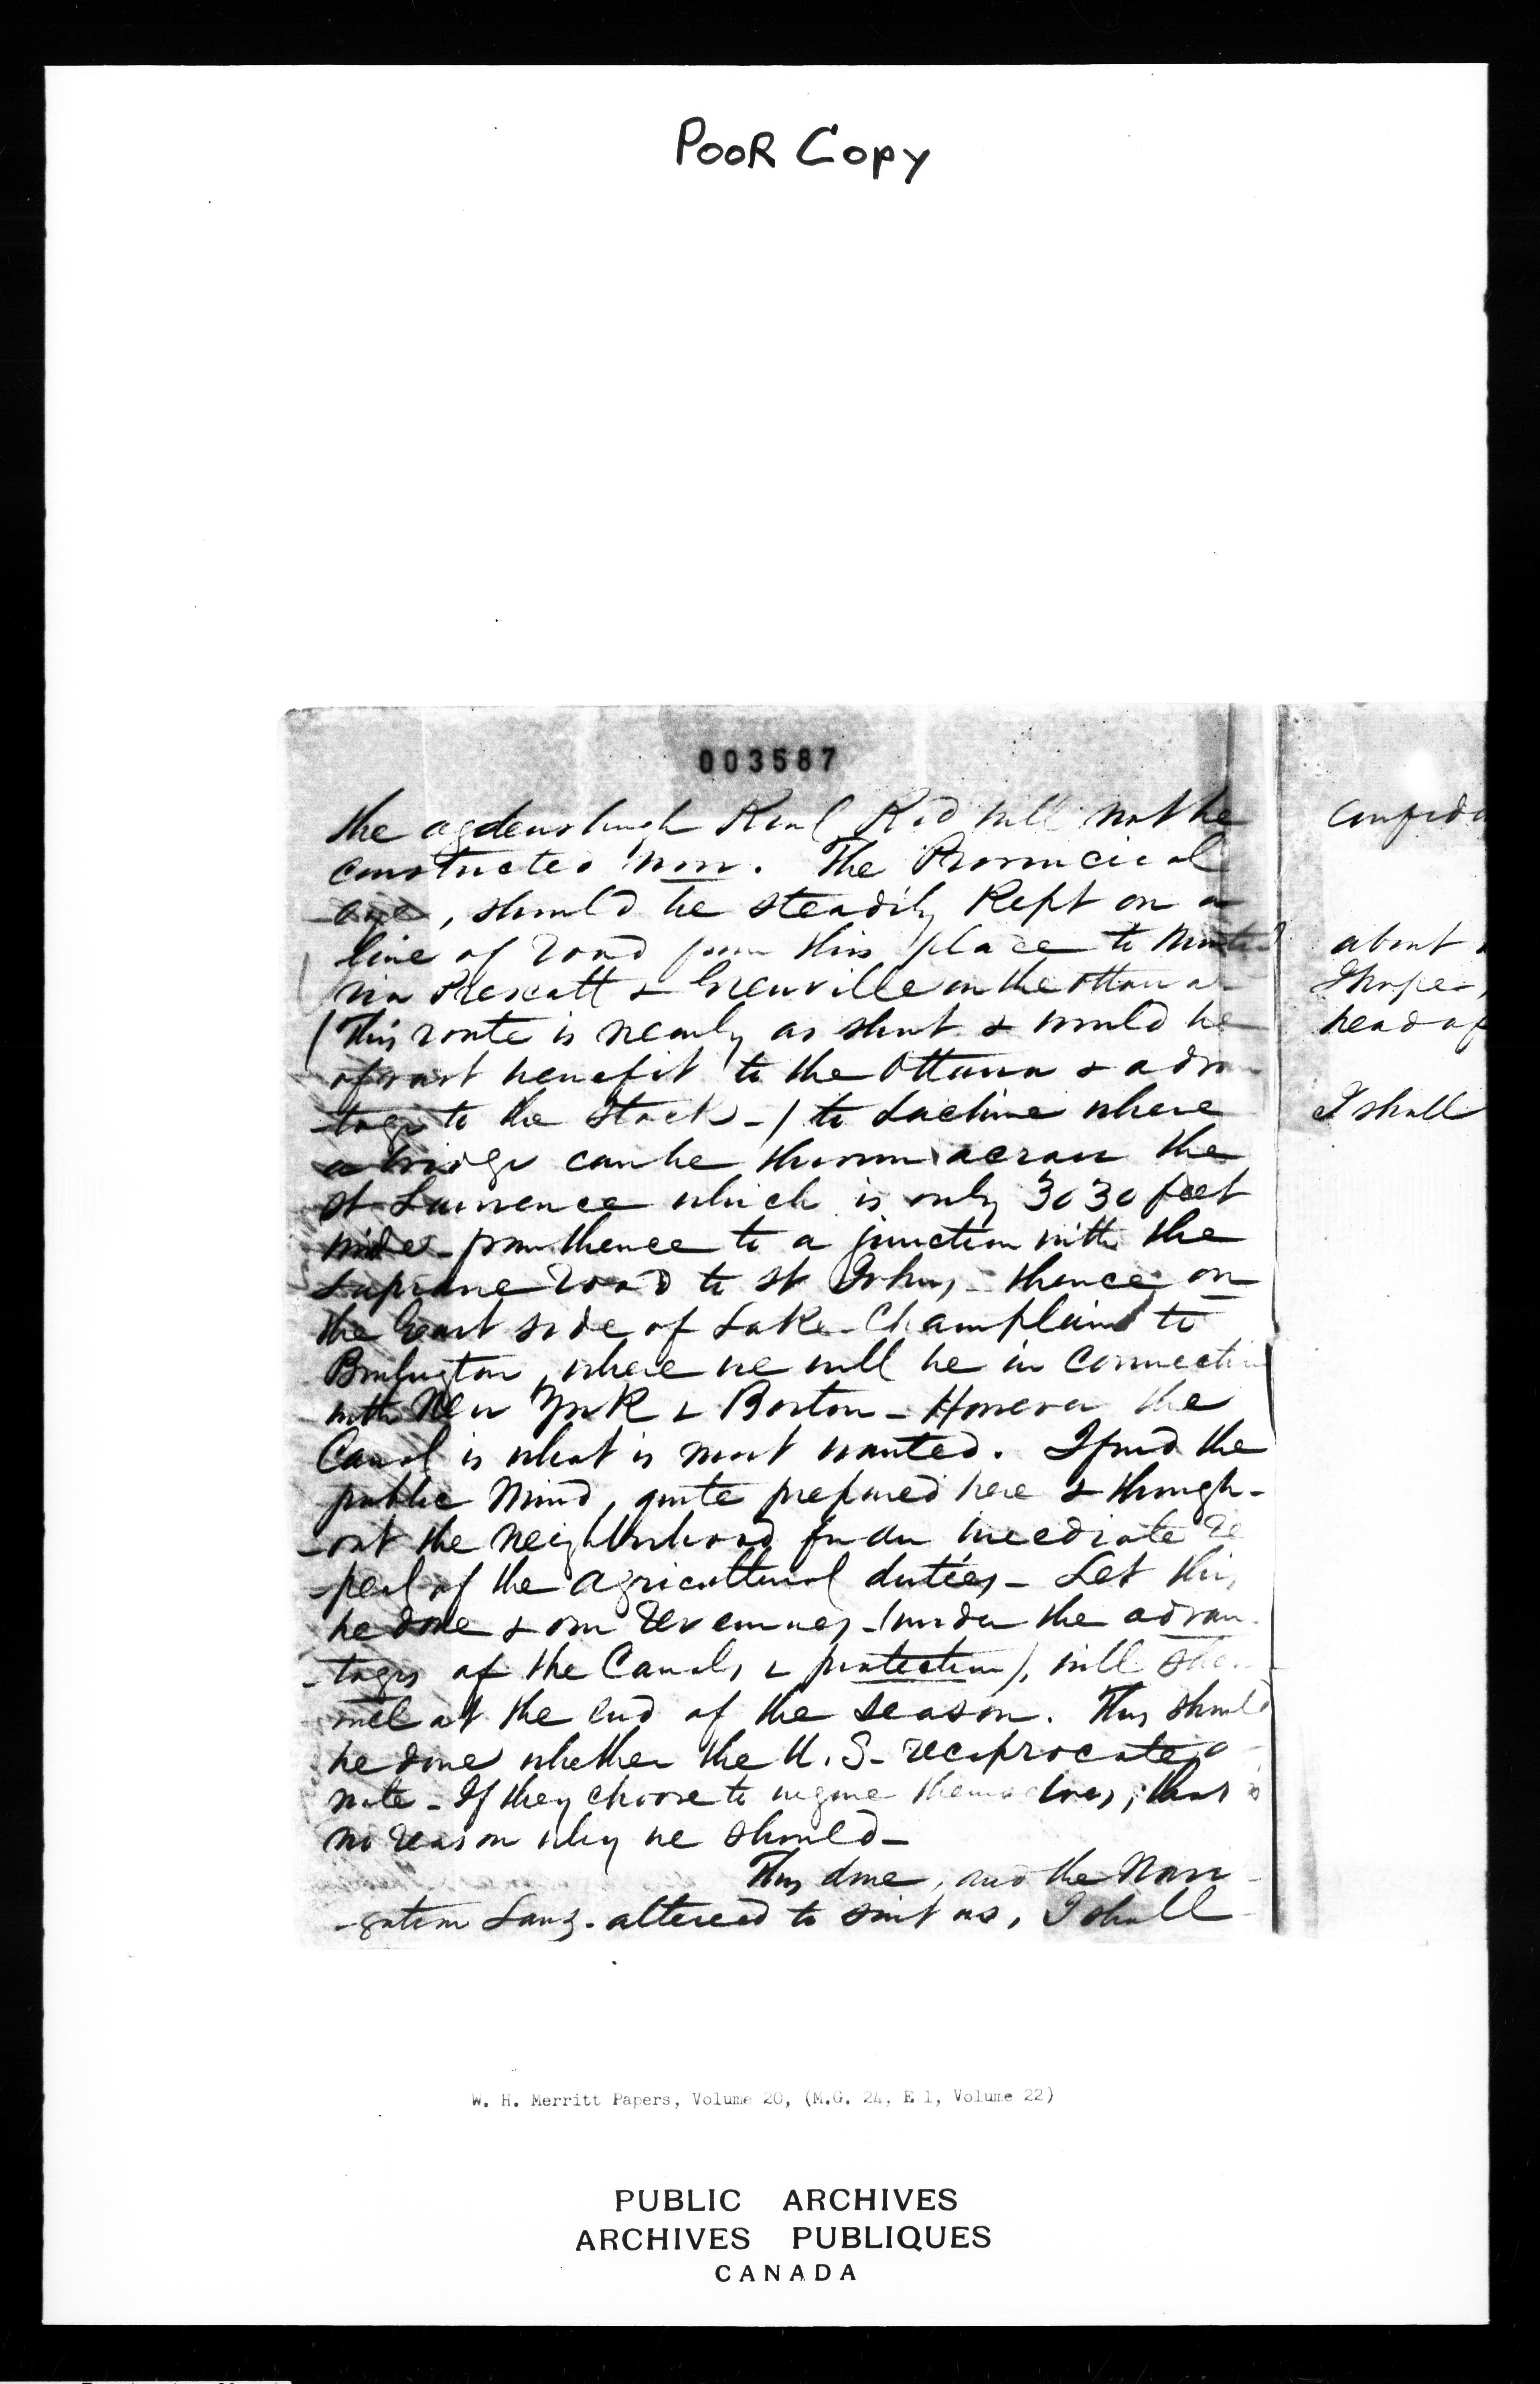 POOR COPY
003587
the ogdensburgh Rail Rod will not be
constructed now. The Provincial
eye, should be steadily Kept on a
line of road from this place to
via Prescott & Grenville on the Ottawa
(This route is nearly as short & would be
of vast benefit to the Ottawa & advan
-tage to the Stock -) to Lachine where
a bridge can be thrown across the
St Lawrence which is only 3030 feet
wide - from thence to a junction with the
Laprarie road to St Johns - thence on
the East side of Lake Champlain to
Burlington, where we will be in connection
with New York & Boston - However the
Canal is what is most wanted. I find the
public mind, quite prepared here & through-
-out the neighbourhood for an imediate re
-peal of the agricultural duties - Let this
be done & our revenues - (under the advan
-tages of the Canals & protection), will
well at the end of the season. This should
be done whether the U.S. reciprocate or
note - If they choose to themselves, that is
no reason why we should -
This done, and the Navi-
-gation Laws. altered to suit us, I shall
confid
about
I hope,
head of
I shall
W. H. Merritt Papers, Volume 20, (M.G. 24, E 1, Volume 22)
PUBLIC ARCHIVES
ARCHIVES PUBLIQUES
CANADA